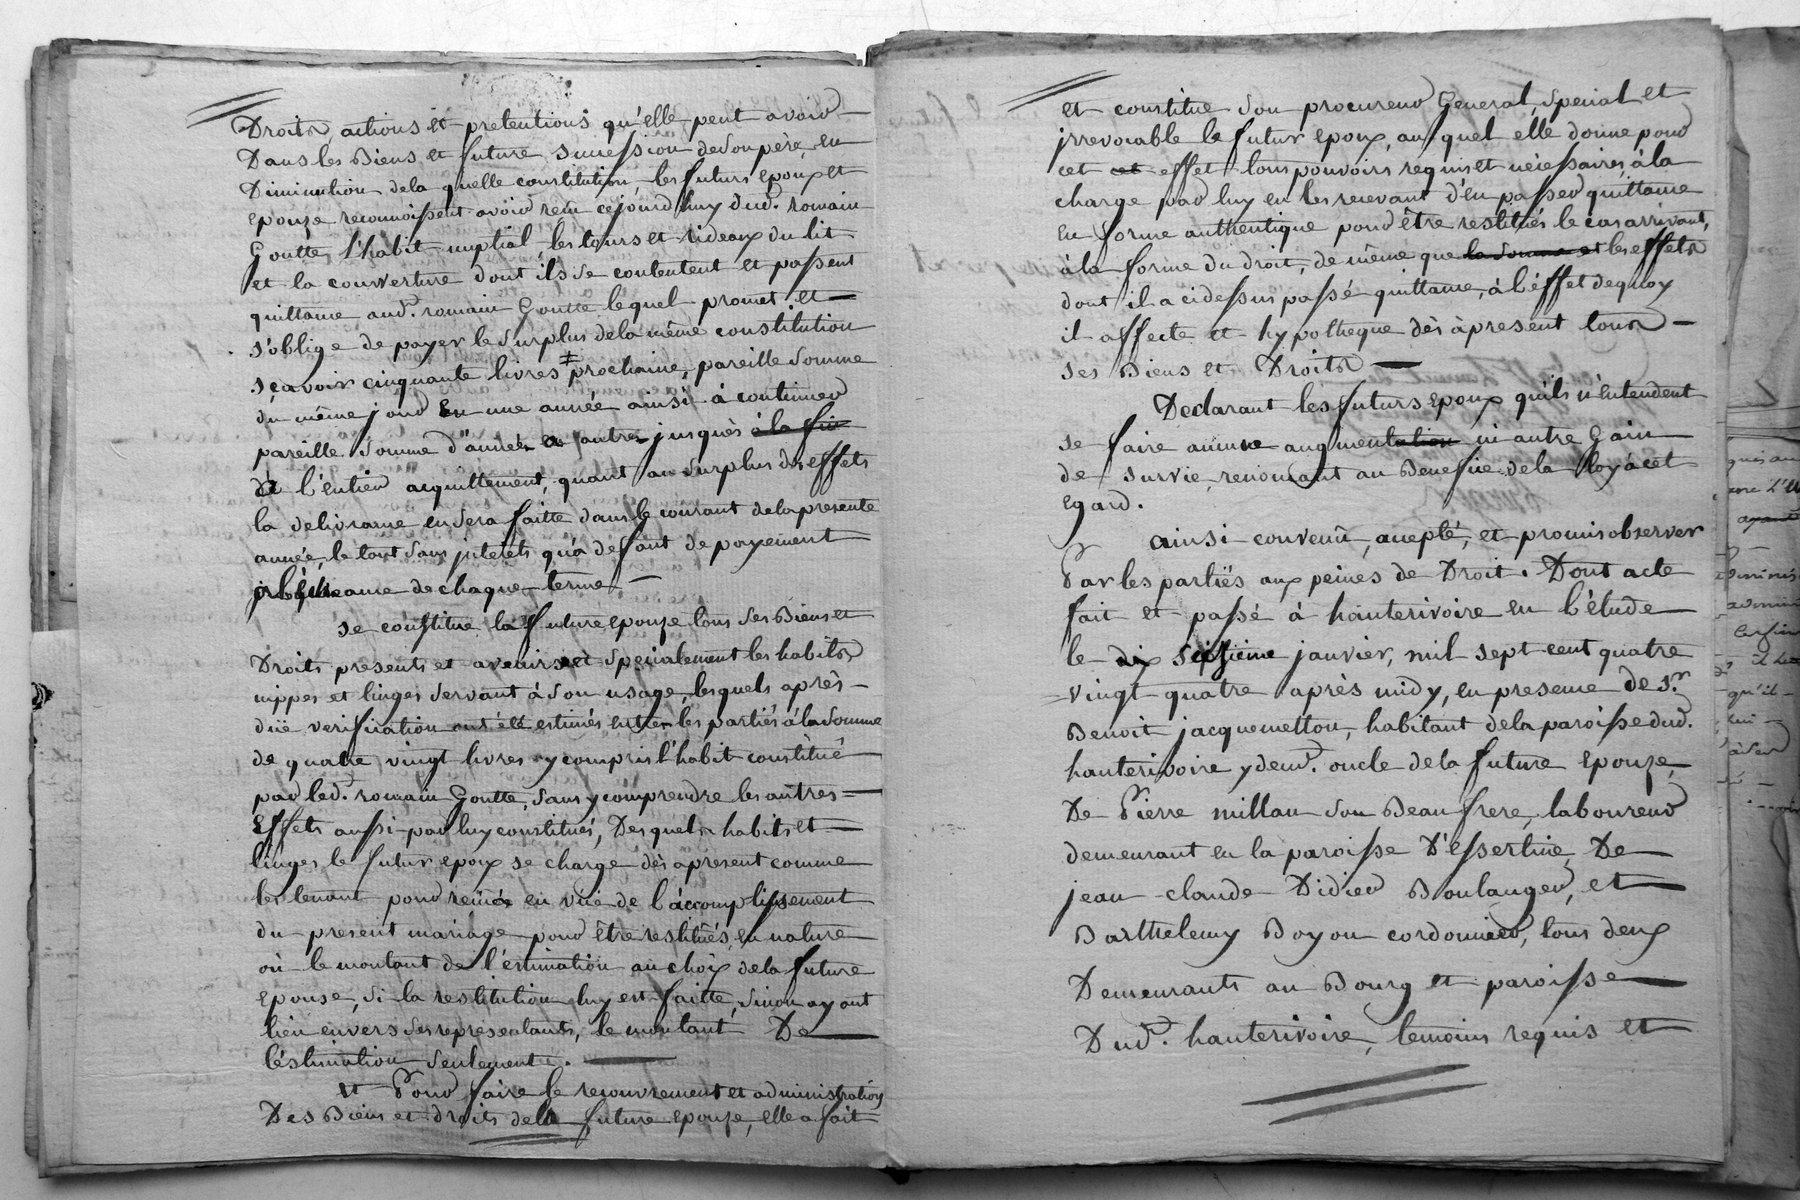 Droits, actions et pretentions qu'elle peut avoir
Dans les Biens et future succession de son père, en
Diminution de la quelle constitution, les futurs epoux et
epouze reconnoissent avoir reçu cejourd'huy dud. romain
Goutte, l'habit nuptial, les tours et rideaux du lit
et la couverture dont ils se contentent et passent
quittance aud. romain Goutte lequel promet et
s'oblige de payer le surplus de la même constitution
sçavoir cinquante livres ‡ prochaine, pareille somme
du même jour en une année ainsi à continuer
pareille somme d'année en autre jusques à la fin
de l'entier acquittement, quant au surplus des effets
la delivrance en sera faitte dans le courant de la presente
année, le tout sans interets qu'a defaut de payement
à l'écheance de chaque terme
se constitue la future epouze tous ses Biens et
Droits presents et avenirs et specialement les habits
nippes et linges servant à son usage, lesquels après
düe verification ont été estimés entre les partiës à la somme
de quatre vingt livres y compris l'habit constitué
par led. romain Goutte, sans y comprendre les autres
Effets aussi par luy constitués, Desquels habits et
linges le futur epoux se charge dès apresent comme
les tenant pour reçus en vüe de l'accomplissement
du present mariage pour être restitués en nature
où le montant de l'estimation au choix de la future
epouse, si la restitution luy est faitte, sinon ayant
lieu envers ses representants, le montant De
l'éstimation seulement.
et Pour faire le recouvrement et administration
Des Biens et droits de la future epouze, elle a fait
et constitue son procureur General, special et
irrevocable le futur epoux, auquel elle donne pour
cet cet effet tous pouvoirs requis et nécessaires, à la
charge par luy en les recevant d'en passer quittance
en forme authentique pour être restitués le cas arrivant,
à la forme du droit, de même que la somme et les effets
dont il a cidessus passé quittance, à l'éffet dequoy
il affecte et hypotheque dès àpresent tous
ses Biens et Droits
Declarant les futurs epoux qu'ils n'entendent
se faire aucune augmentation ni autre Gain
de survie, renonçant au Benefice de la loy à cet
Egard.
ainsi convenû, accepté, et promis observer
Par les partiës aux peines de Droit. Dont acte
fait et passé à hauterivoire en l'étude
le dix septieme janvier, mil sept cent quatre
vingt quatre après midy, en presence de sr.
Benoit jacquemetton, habitant de la paroisse dud.
hauterivoire y demt. oncle de la future Epouze,
De Pierre millan son Beaufrere, laboureur
demeurant en la paroisse D'essertine, De
jean claude Didier Boulanger, et
Barthelemy Boyon cordonnier, tous deux
Demeurants au Bourg et paroisse
Dud. hauterivoire, temoins requis et